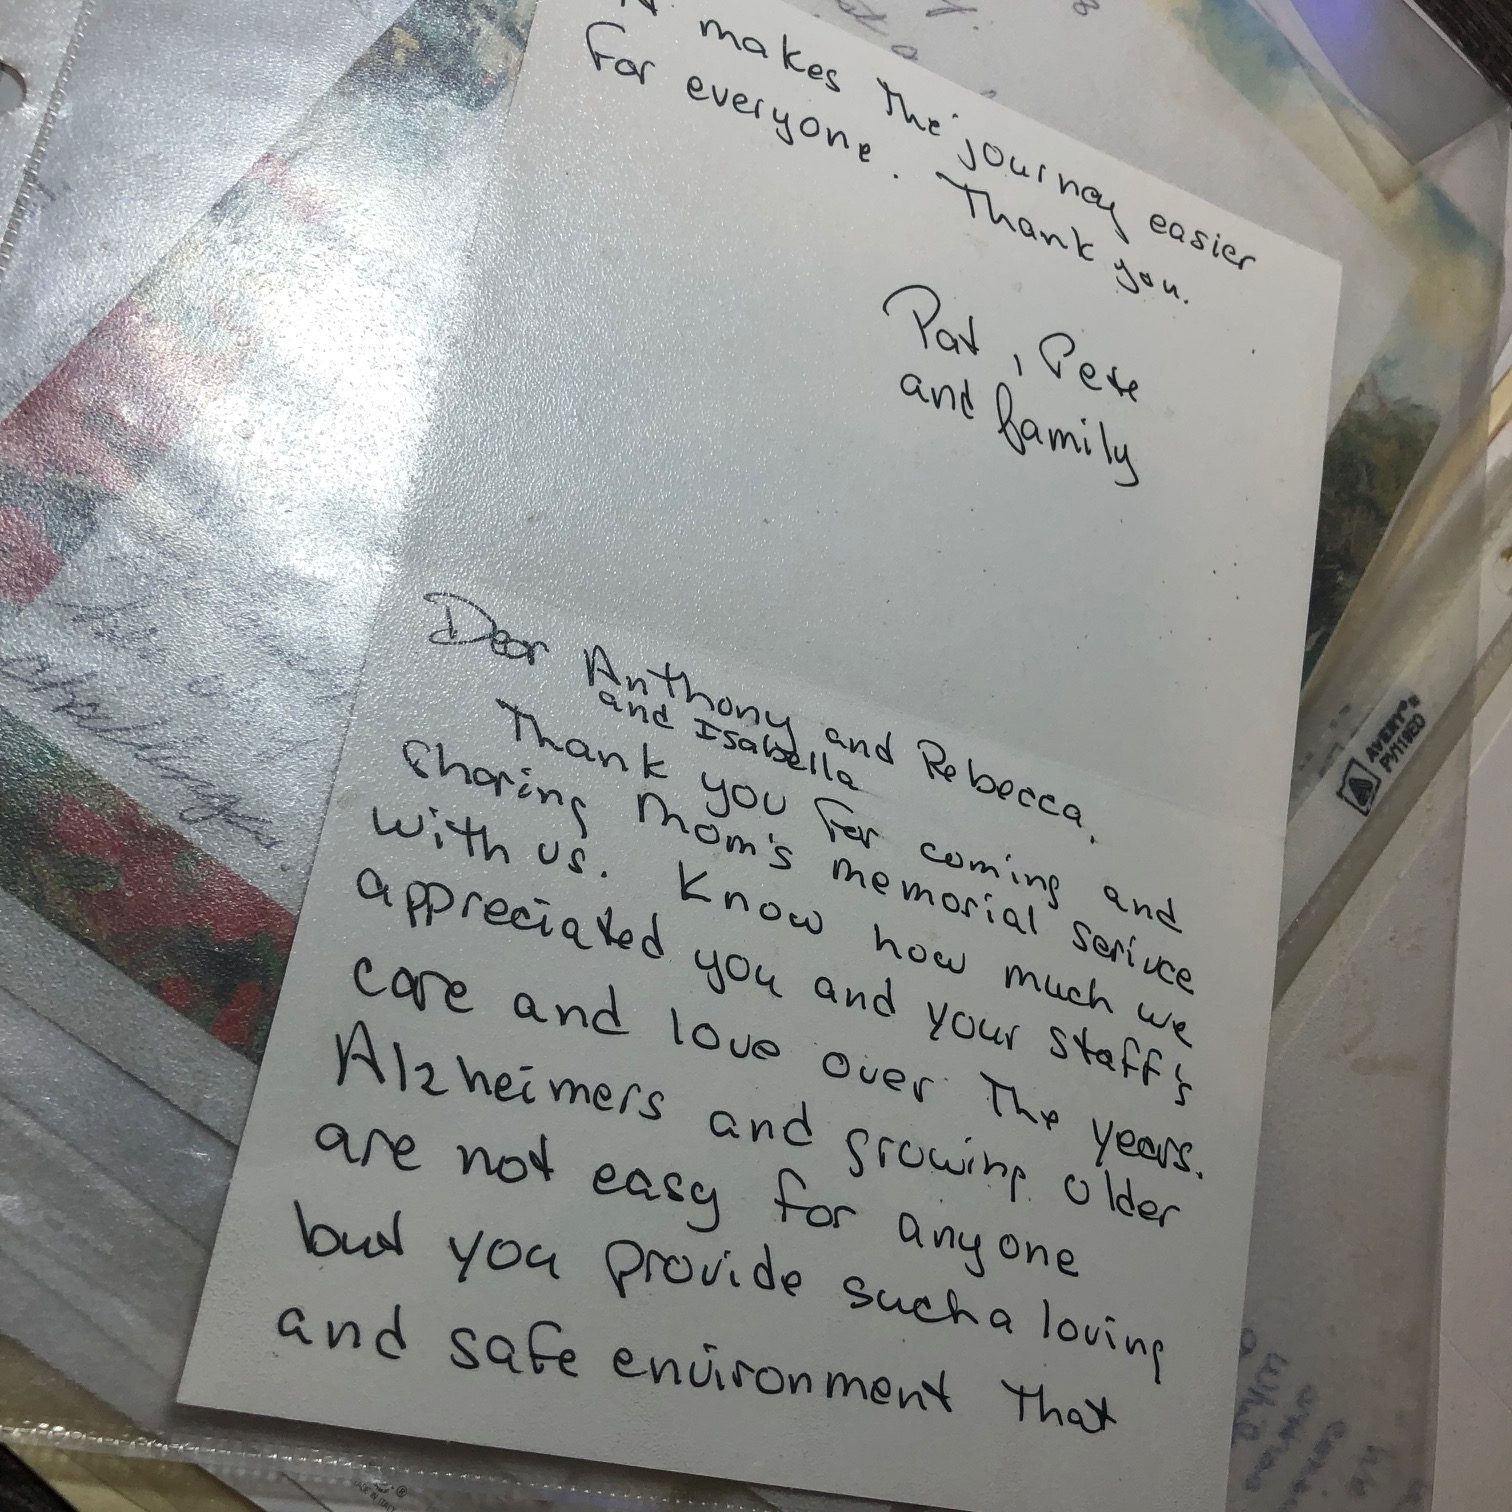 makes the journey easier
for everyone. Thank you.
Pat, Pete
and family
Dear Anthony and Rebecca,
and Isabella
Thank you for coming and
sharing Mom's memorial serivce
with us. Know how much we
appreciated you and your staff's
care and love over the years.
Alzheimers and growing older
are not easy for anyone
but you provide such a loving
and safe environment that
AVERY®
MADE IN ITALY